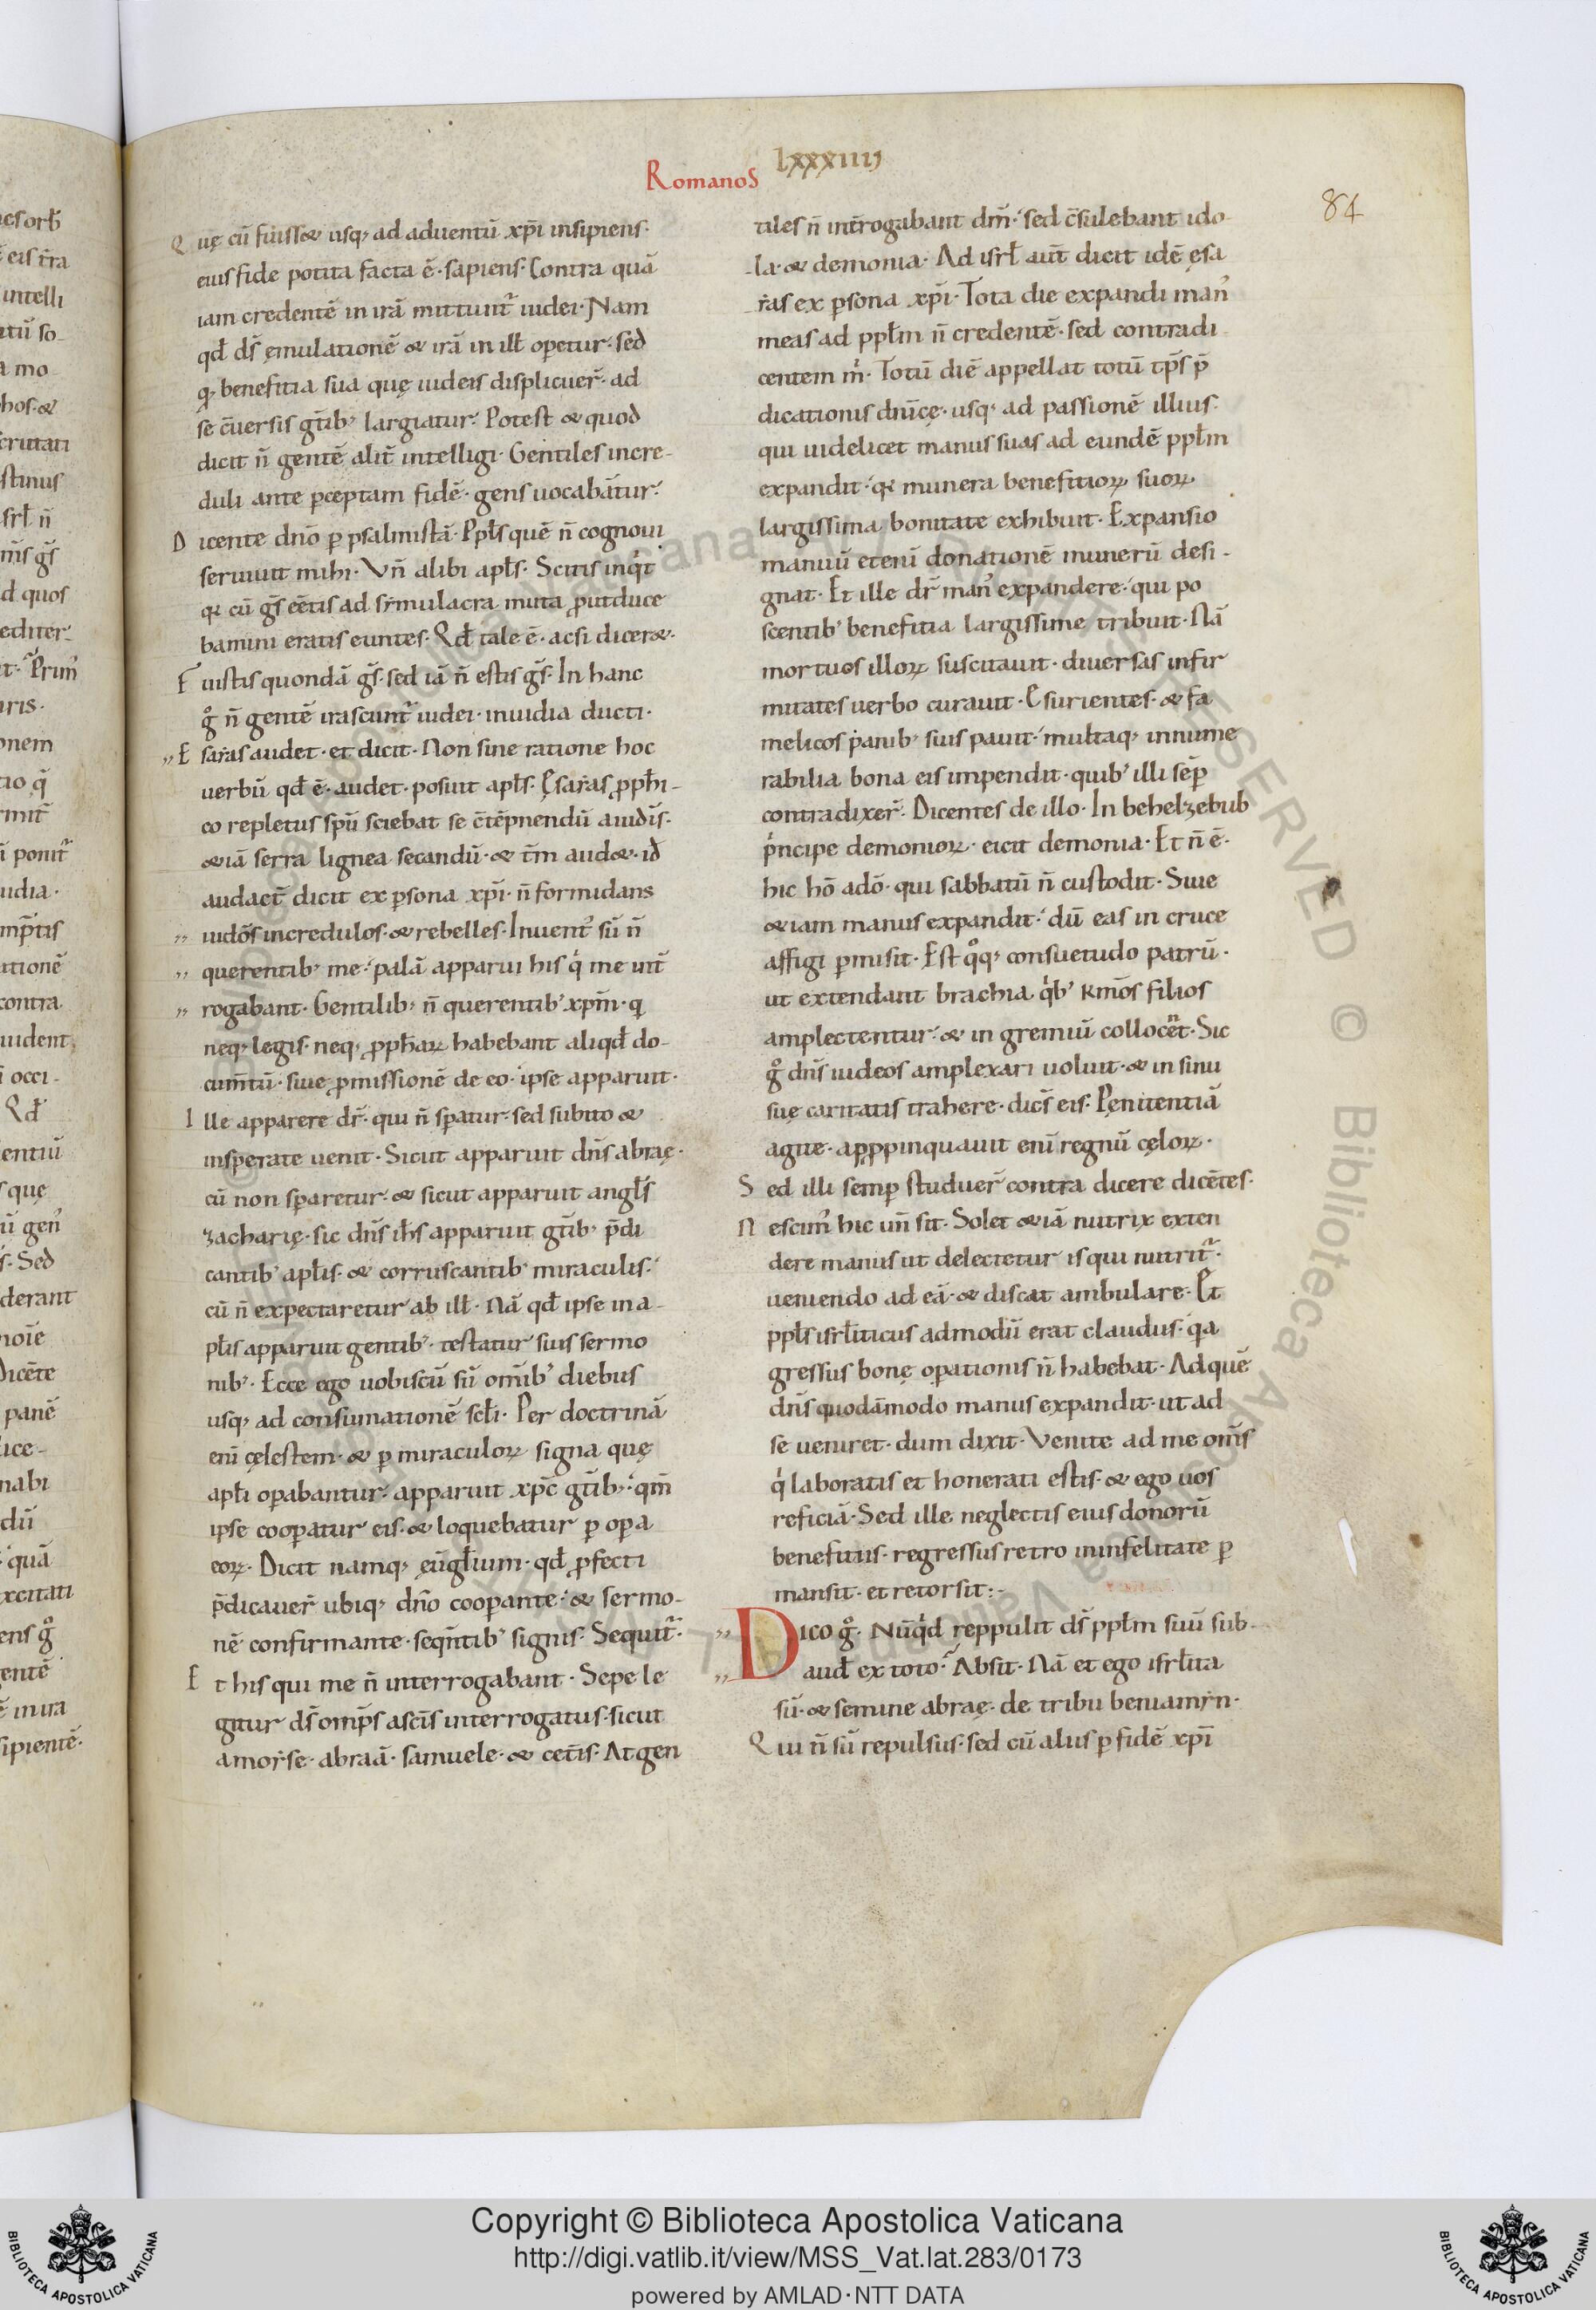 Romanos lxxxiiij
84
Quę cū fuiss& usq; ad aduentū xp̄i insipiens·
eius fide potita facta ē· sapiens· Contra quā
iam credentē in irā mittunt᷑ iudei· Nam
qđ ds̄ ęmulationē & irā in illˀ opetur· sed
q; benefitia sua quę iudeis displicuer̄· ad
se c̄uersis gt̄ib; largiatur· Potest & quod
dicit n̄ gentē alit̄ intelligi· Gentiles incre-
duli ante pceptam fidē· gens uocabātur·
Dicente dn̄o p psalmistā· Ppłs quē n̄ cognoui
seruiuit mihi· Vn̄ alibi apłs· Scitis inqͥt
qi cū gs̄ eētis ad simulacra muta prout duce
bamini eratis euntes· Qđ tale ē· acsi dicer&·
Fuistis quondā gs̄· sed iā n̄ estis gs̄· In hanc
gͦ n̄ gentē irascunt᷑ iudei· inuidia ducti·
Esaias audet· et dicit· Non sine ratione hoc
uerbū qđ ē· audet· posuit apłs· Esaias pph̄i-
co repletus spū sciebat se c̄tēpnendū a iudīs·
&iā serra lignea secandū· & tm̄ aud&· id
audact̄ dicit ex psona xp̄i· n̄ formidans
iudōs incredulos· & rebelles· Inuentꝰ sū n̄
querentib; me· palā apparui his qͥ me int̄
rogabant· Gentilib; n̄ querentibꝰ xpm̄· q
neq; legis· neq; pph̄aꝝ habebant aliqđ do-
cum̄tū· siue pmissionē de eo· ipse apparuit·
Ille apparere dr̄· qui n̄ spatur· sed subito &
insperate uenit· Sicut apparuit dn̄s abraę·
cū non sparetur· & sicut apparuit angłs
zacharię· sic dn̄s ih̄s apparuit gt̄ib; p̄di
cantibꝰ apłis· & corruscantibꝰ miraculis·
cū n̄ expectaretur ab illˀ· Nā qđ ipse in a-
płis apparuit gentibꝰ· testatur suis sermo
nibꝰ· Ecce ego uobiscū sū om̄ibꝰ diebus
usq; ad consumationē scłi· Per doctrinā
enī cęlestem· & p miraculoꝝ signa quę
apłi opabantur· apparuit xp̄c gt̄ib;· qm̄
ipse coopatur eis· & loquebatur p opa
eoꝝ· Dicit namq; eūgłium· qđ pfecti
p̄dicauer̄ ubiq; dn̄o coopante· & sermo-
nē confirmante· seqn̄tibꝰ signis· Sequit᷑·
Et his qui me n̄ interrogabant· Sepe le
gitur ds̄ omp̄s a scīs interrogatus· sicut
a moẏse· abraā· samuele· & cet̄is· At gen
tiles n̄ int̄rogabant dm̄· sed c̄sulebant ido-
la· & demonia· Ad isrł aut̄ dicit idē ęsa
ias ex psona xp̄i· Tota die expandi manꝰ
meas ad ppłm n̄ credentē· sed contradi
centem mͥ· Totū diē appellat totū tp̄s p̄
dicationis dn̄icę· usq; ad passionē illius·
qui uidelicet manus suas ad eundē ppłm
expandit· qi munera benefitioꝝ suoꝝ
largissima bonitate exhibuit· Expansio
manuū etenī donationē munerū desi-
gnat· Et ille dr̄ manꝰ expandere· qui po
scentibꝰ benefitia largissime tribuit· Nā
mortuos illoꝝ suscitauit· diuersas infir
mitates uerbo curauit· Esurientes· & fa
melicos panibꝰ suis pauit· multaq; innume
rabilia bona eis impendit· quibꝰ illi sēp
contradixer̄· Dicentes de illo· In behelzebub
pͥncipe demonioꝝ· eicit demonia· Et n̄ ē·
hic hō a dō· qui sabbatū n̄ custodit· Siue
&iam manus expandit· dū eas in cruce
affigi pmisit· Est qͦq; consuetudo patrū·
ut extendant brachia qͥbꝰ km̄os filios
amplectentur· & in gremiū collocēt· Sic
gͦ dn̄s iudeos amplexari uoluit· & in sinu
suę caritatis trahere· dics̄ eis· Pęnitentiā
agite· appropinquauit enī regnū cęloꝝ·
Sed illi semp studuer̄ contra dicere dicētes·
Nescimꝰ hic un̄ sit· Solet &iā nutrix exten
dere manus ut delectetur is qui nutrit᷑·
ueniendo ad eā· & discat ambulare· Et
ppłs isrłiticus admodū erat claudus· qa
gressus bonę opationis n̄ habebat· Ad quē
dn̄s quodāmodo manus expandit· ut ad
se ueniret· dum dixit· Venite ad me om̄s
qͥ laboratis et honerati estis· & ego uos
reficiā· Sed ille neglectis eius donorū
benefitiis· regressus retro in infelitate p
mansit· et retorsit:-
Dico gͦ· Nūqͥd reppulit ds̄ ppłm suū sub-
aud̄ ex toto· Absit· Nā et ego isrłita
sū· & semine abraę· de tribu beniamẏn·
Qui n̄ sū repulsus· sed cū aliis p fidē xp̄i
Copyright © Biblioteca Apostolica Vaticana
http://digi.vatlib.it/view/MSS_Vat.lat.283/0173
powered by AMLAD·NTT DATA
BIBLIOTECA APOSTOLICA VATICANA
BIBLIOTECA APOSTOLICA VATICANA